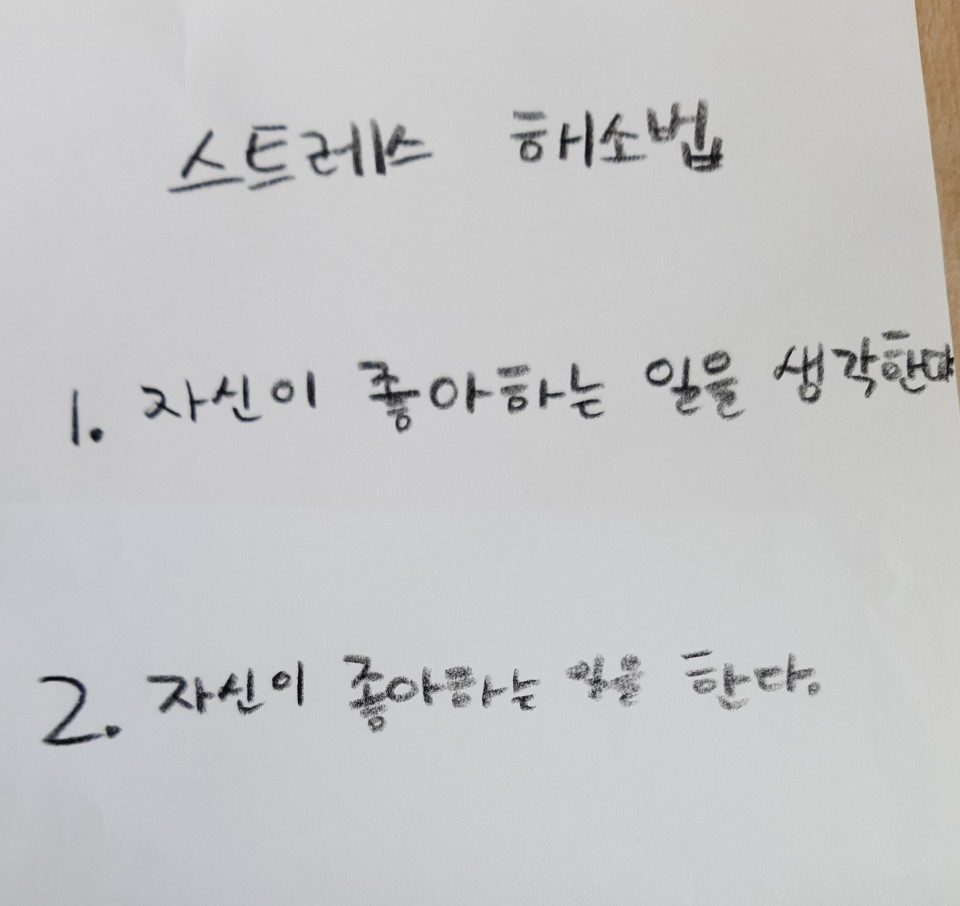 스트레스 해소법
1. 자신이 좋아하는 일을 생각한다
2. 자신이 좋아하는 일을 한다.